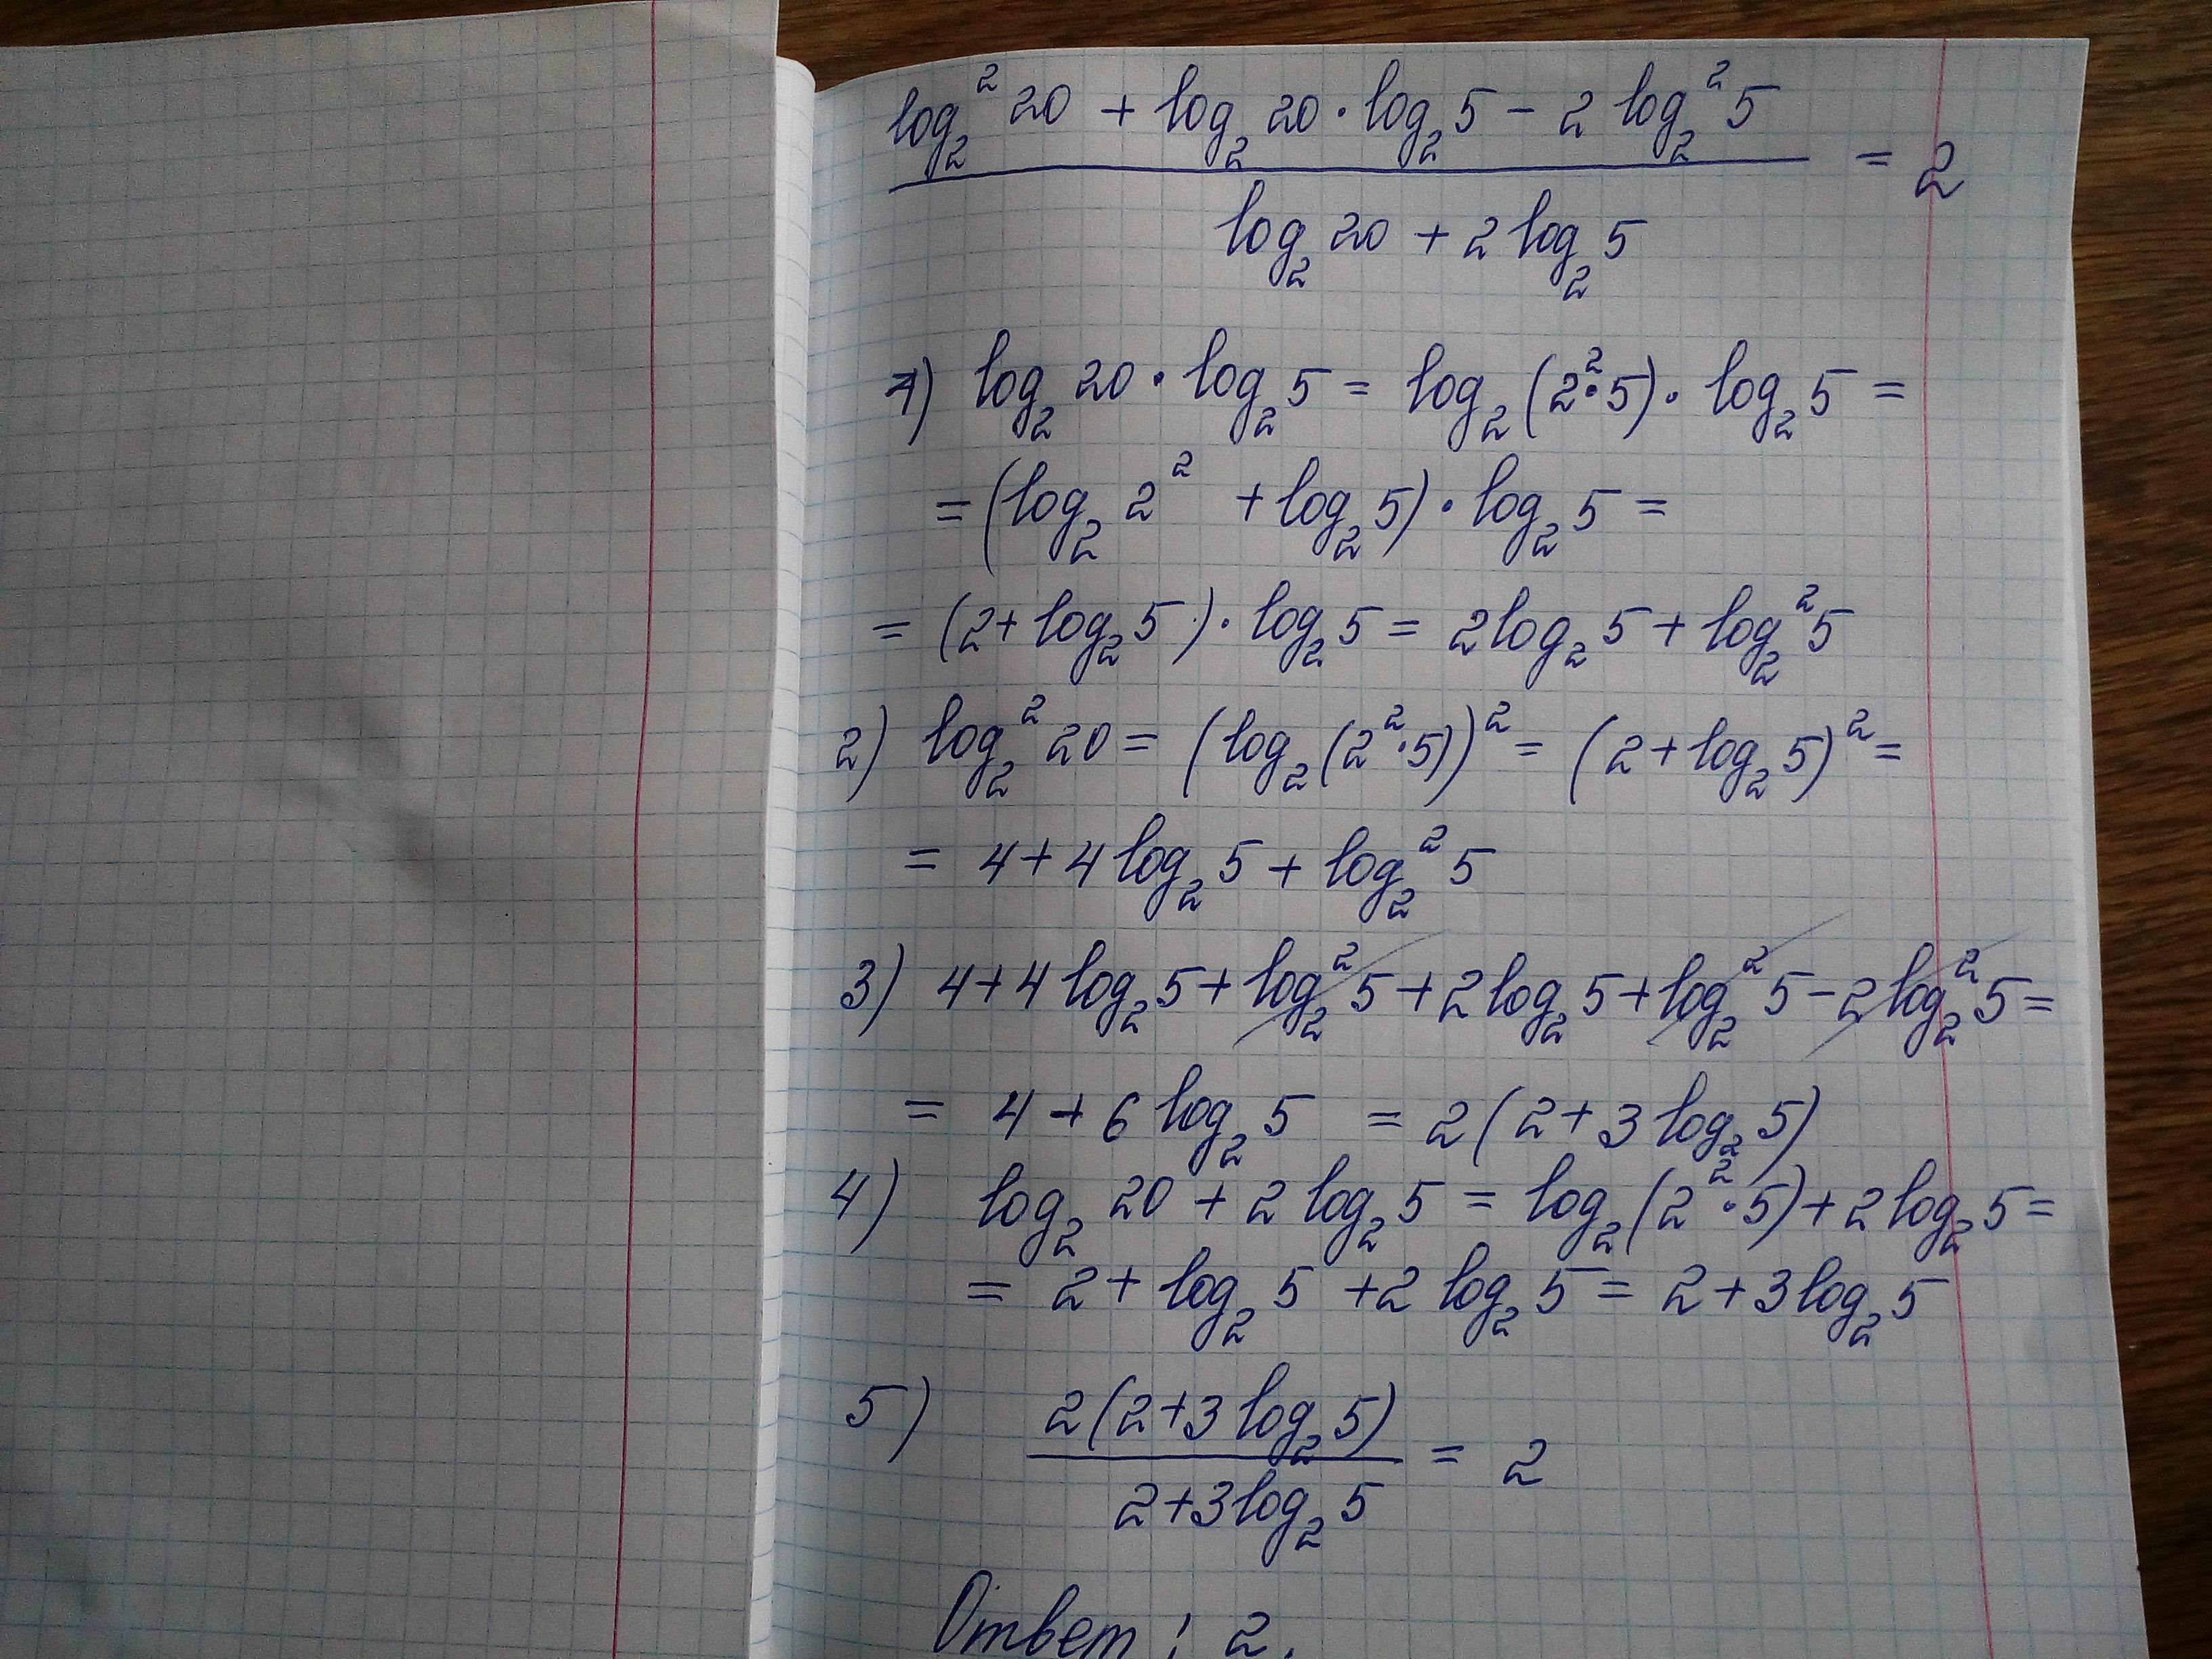 log₂² 20 + log₂ 20 · log₂ 5 − 2 log₂² 5
= 2
log₂ 20 + 2 log₂ 5
1) log₂ 20 · log₂ 5 = log₂ (2² · 5) · log₂ 5 =
= (log₂ 2² + log₂ 5) · log₂ 5 =
= (2 + log₂ 5) · log₂ 5 = 2 log₂ 5 + log₂² 5
2) log₂² 20 = (log₂ (2² · 5))² = (2 + log₂ 5)² =
= 4 + 4 log₂ 5 + log₂² 5
3) 4 + 4 log₂ 5 + log₂² 5 + 2 log₂ 5 + log₂² 5 − 2 log₂² 5 =
= 4 + 6 log₂ 5 = 2 (2 + 3 log₂ 5)
4) log₂ 20 + 2 log₂ 5 = log₂ (2² · 5) + 2 log₂ 5 =
= 2 + log₂ 5 + 2 log₂ 5 = 2 + 3 log₂ 5
5) 2 (2 + 3 log₂ 5)
= 2
2 + 3 log₂ 5
Ответ: 2.